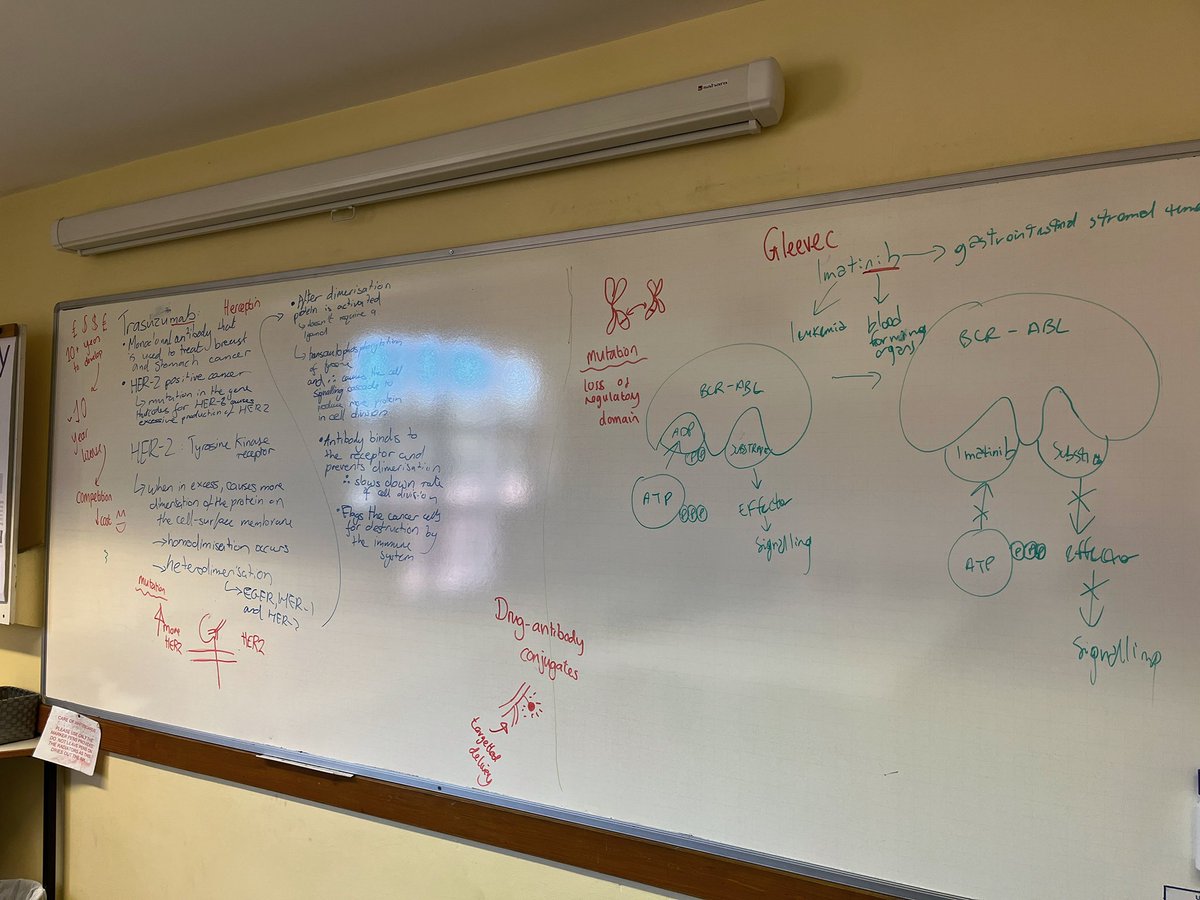 £ $ $ €
10+ years
to develop
~10
year
license
competition
cost
Trasuzumab: Herceptin
• Monoclonal antibody that
is used to treat breast
and stomach cancer
• HER-2 positive cancer
↳ mutation in the gene
that codes for HER-2 causes
excessive production of HER2
HER-2 : Tyrosine Kinase
receptor
↳ when in excess, causes more
dimerisation of the protein on
the cell-surface membrane
→ homodimisation occurs
→ heterodimerisation
↳ EGFR, HER-1
and HER-3
mutation
more
HER2
HER2
• After dimerisation
protein is activated
↳ doesn't require a
ligand
↳ transautophosphorylation
of tyrosine
and ∴ causes the cell
signalling cascade to
produce more protein
in cell division
• Antibody binds to
the receptor and
prevents dimerisation
∴ slows down rate
of cell division
• Flags the cancer cells
for destruction by
the immune
system
Drug-antibody
conjugates
targetted
delivery
mutation
loss of
regulatory
domain
Gleevec
Imatinib → gastrointestinal stromal
leukemia
blood
forming
organs
BCR-ABL
ADP
P P
SUBSTRATE
ATP
P P P
Effector
signalling
BCR-ABL
Imatinib
ATP
P P P
effector
signalling
CARE OF WHITEBOARDS
PLEASE USE ONLY THE
MARKER PENS PROVIDED
DO NOT LEAVE PENS ON
THE RADIATORS AS THIS
DRIES OUT THE INK